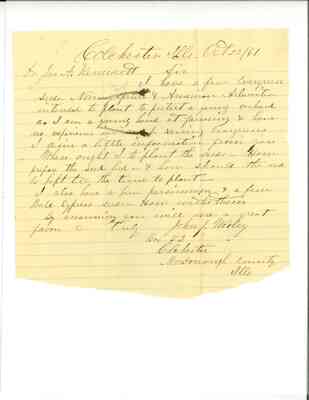 Colchester Ills Oct 22/81
Dr Jno A. Kennicott Sir
I have a few Evergreen
seeds Norway Spruce & American Arbovitae
intended to plant to protect a young orchard
as I am a young hand at farming & have
no experience in raising Evergreens
I desire a little information from you
When ought I to plant the seeds & how
prepare the seed bed & how should the
be left till the time to plant
I also have a few persimmon & a few
Bald Cypress seeds how with them
By answering you will do me a great
favor & truly John J. Worley
Box 52
Colchester
McDonough County
Ills